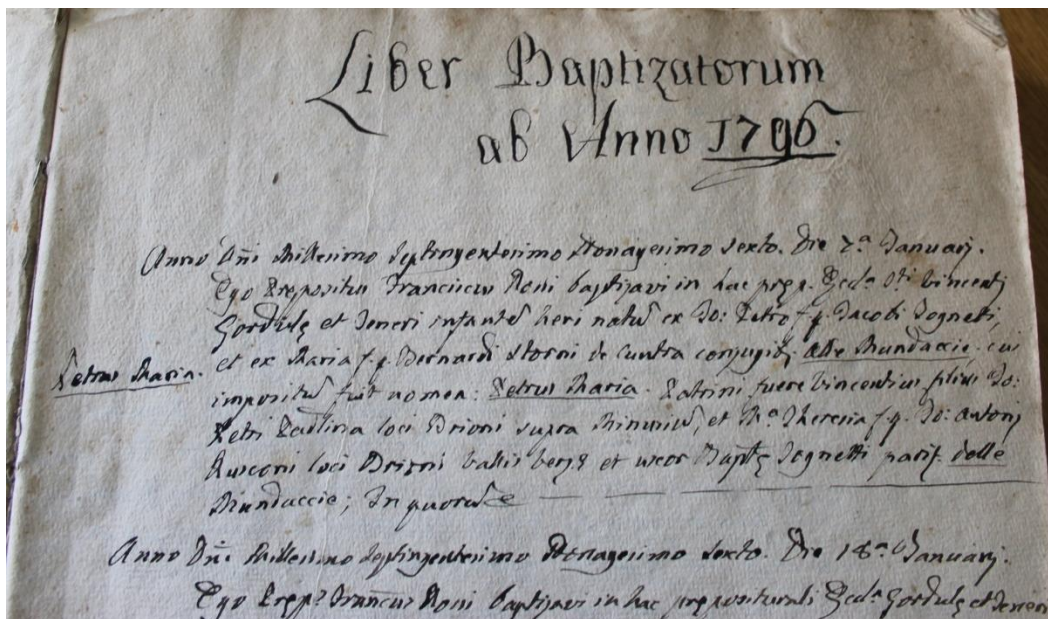 Liber Baptizatorum
ab Anno 1796.
Anno Dñi Millesimo Septingentesimo Nonagesimo Sexto. Die 7.ª Januarj.
Ego Prepositus Franciscus Roni baptizavi in hac prep. Eccl.ª S.ti Vincentj
Gordulę et Teneri infantẽ heri natũ ex Jo: Petro f. q. Jacobi Tognetti,
Petrus Maria.
et ex Maria f. q. Bernardi Storni de Cuntra conjugib. alle Mundaccie. cui
impositũ fuit nomen: Petrus Maria. Patrini fuere Vincentius filius Jo:
Petri loci Brioni supra Minusiũ, et M.ª Theresia f. q. Jo: Antonj
Rusconi loci Vallis et uxor Bapt.ę Tognetti delle
Mundaccie; In quorũ
Anno Dñi Millesimo Septingentesimo Nonagesimo Sexto. Die 18.ª Januarj.
Ego Franc.us Roni baptizavi in hac prepositurali Eccl.ª Gordulę et Teneri